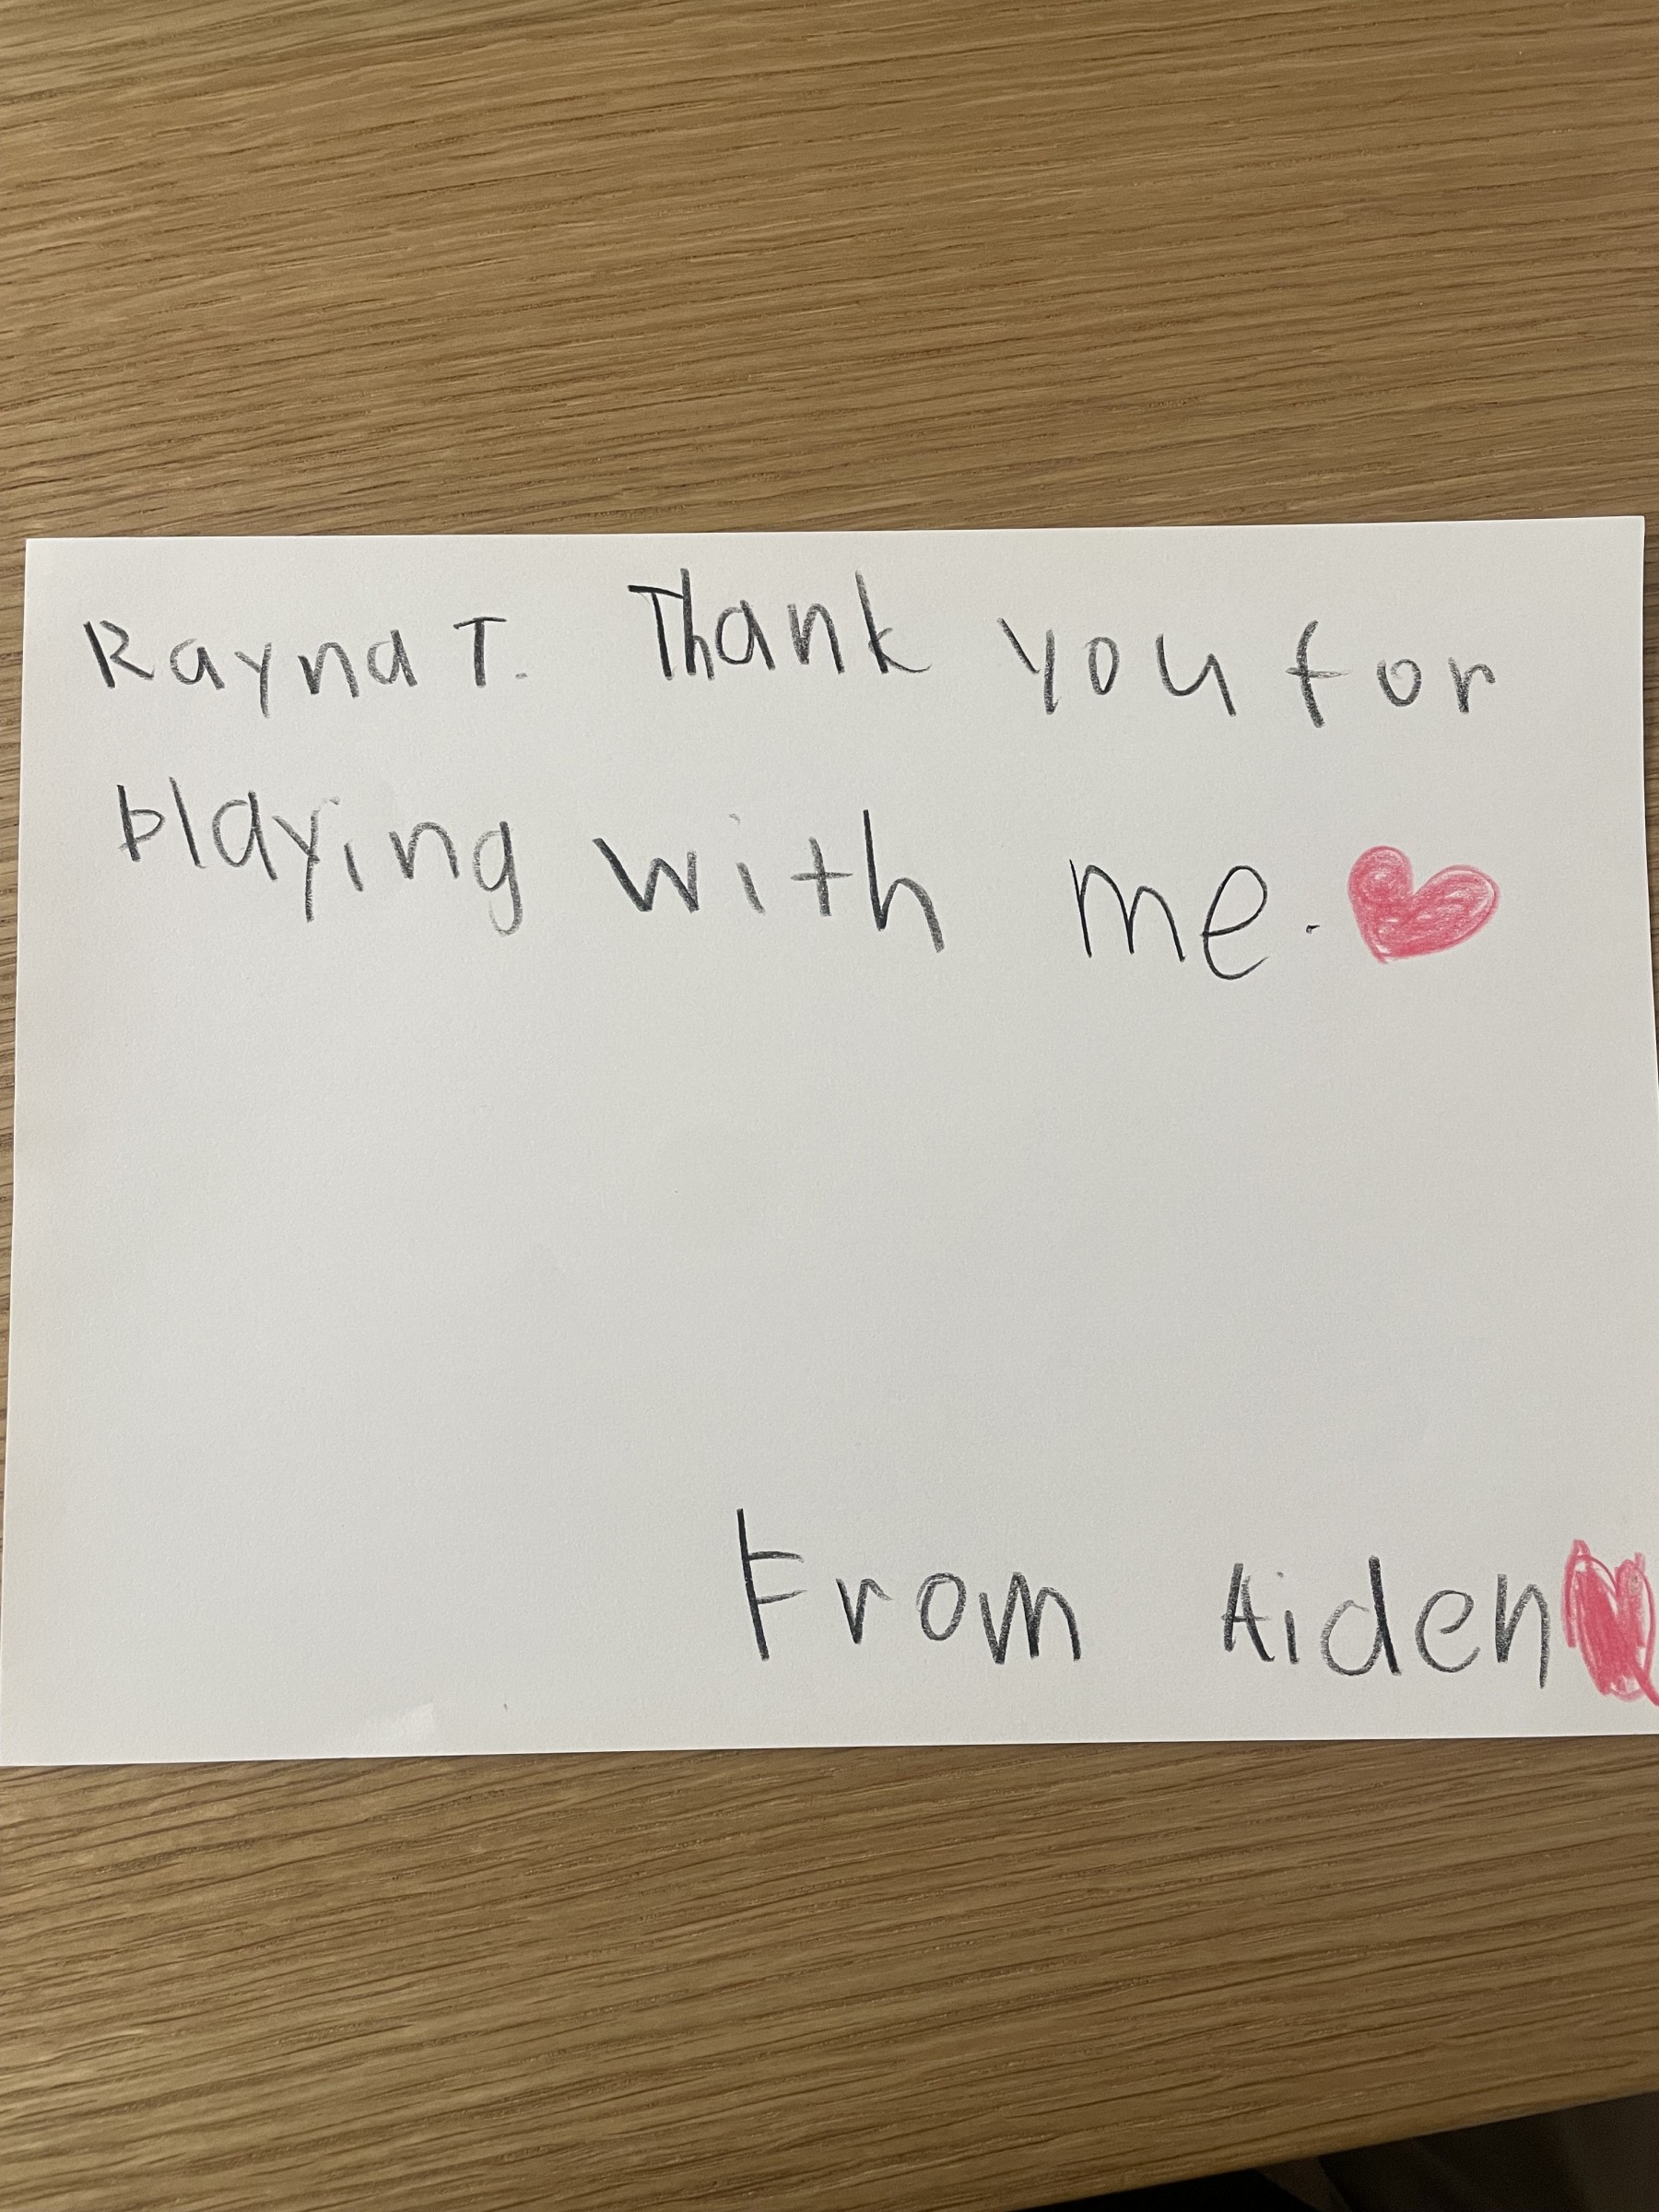 Rayna T. Thank you for
playing with me.
From Aiden